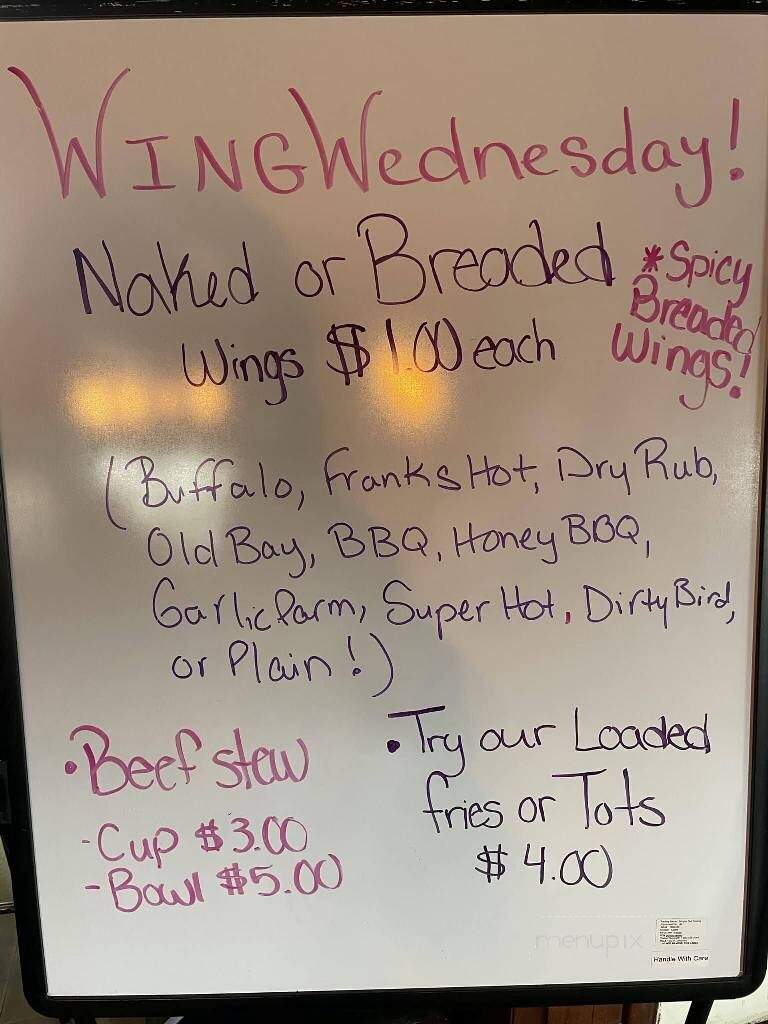 WING Wednesday!
Naked or Breaded
Wings $1.00 each
*Spicy
Breaded
Wings!
(Buffalo, Franks Hot, Dry Rub,
Old Bay, BBQ, Honey BBQ,
Garlic Parm, Super Hot, Dirty Bird,
or Plain!)
•Beef stew
-Cup $3.00
-Bowl $5.00
•Try our Loaded
fries or Tots
$4.00
menupix
Handle With Care